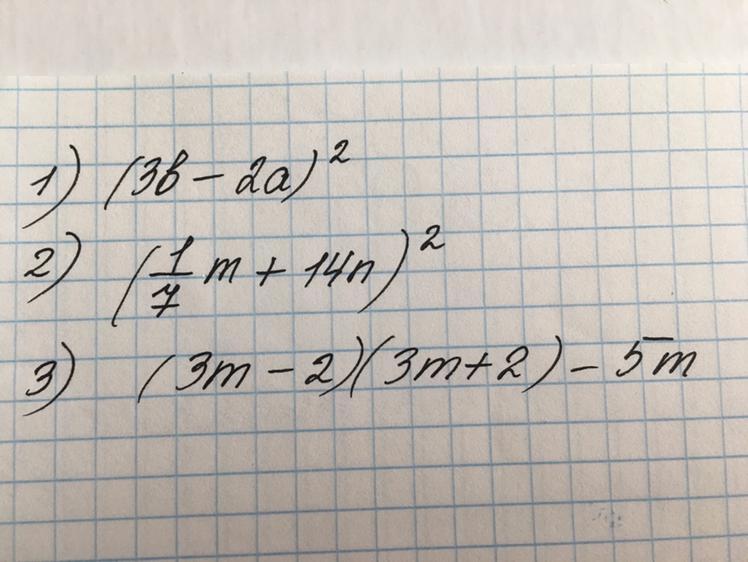 1) (3b - 2a)²
2) (1/7 m + 14n)²
3) (3m - 2)(3m + 2) - 5m